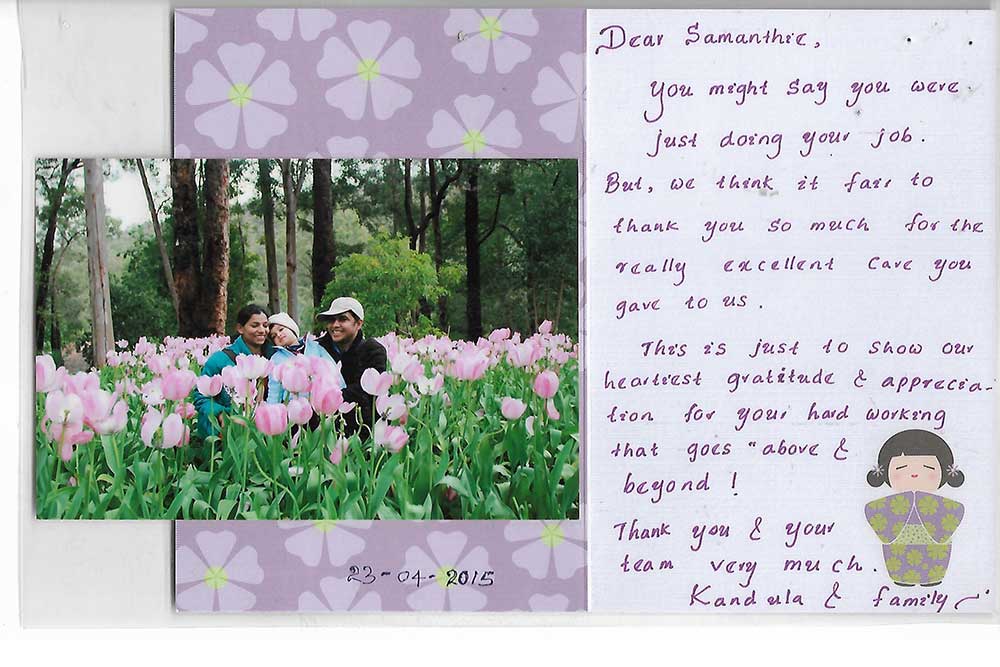 23-04-2015
Dear Samanthie,
You might say you were
just doing your job.
But, we think it fair to
thank you so much for the
really excellent care you
gave to us.
This is just to show our
heartiest gratitude & apprecia-
tion for your hard working
that goes "above &
beyond !
Thank you & your
team very much.
Kandula & family